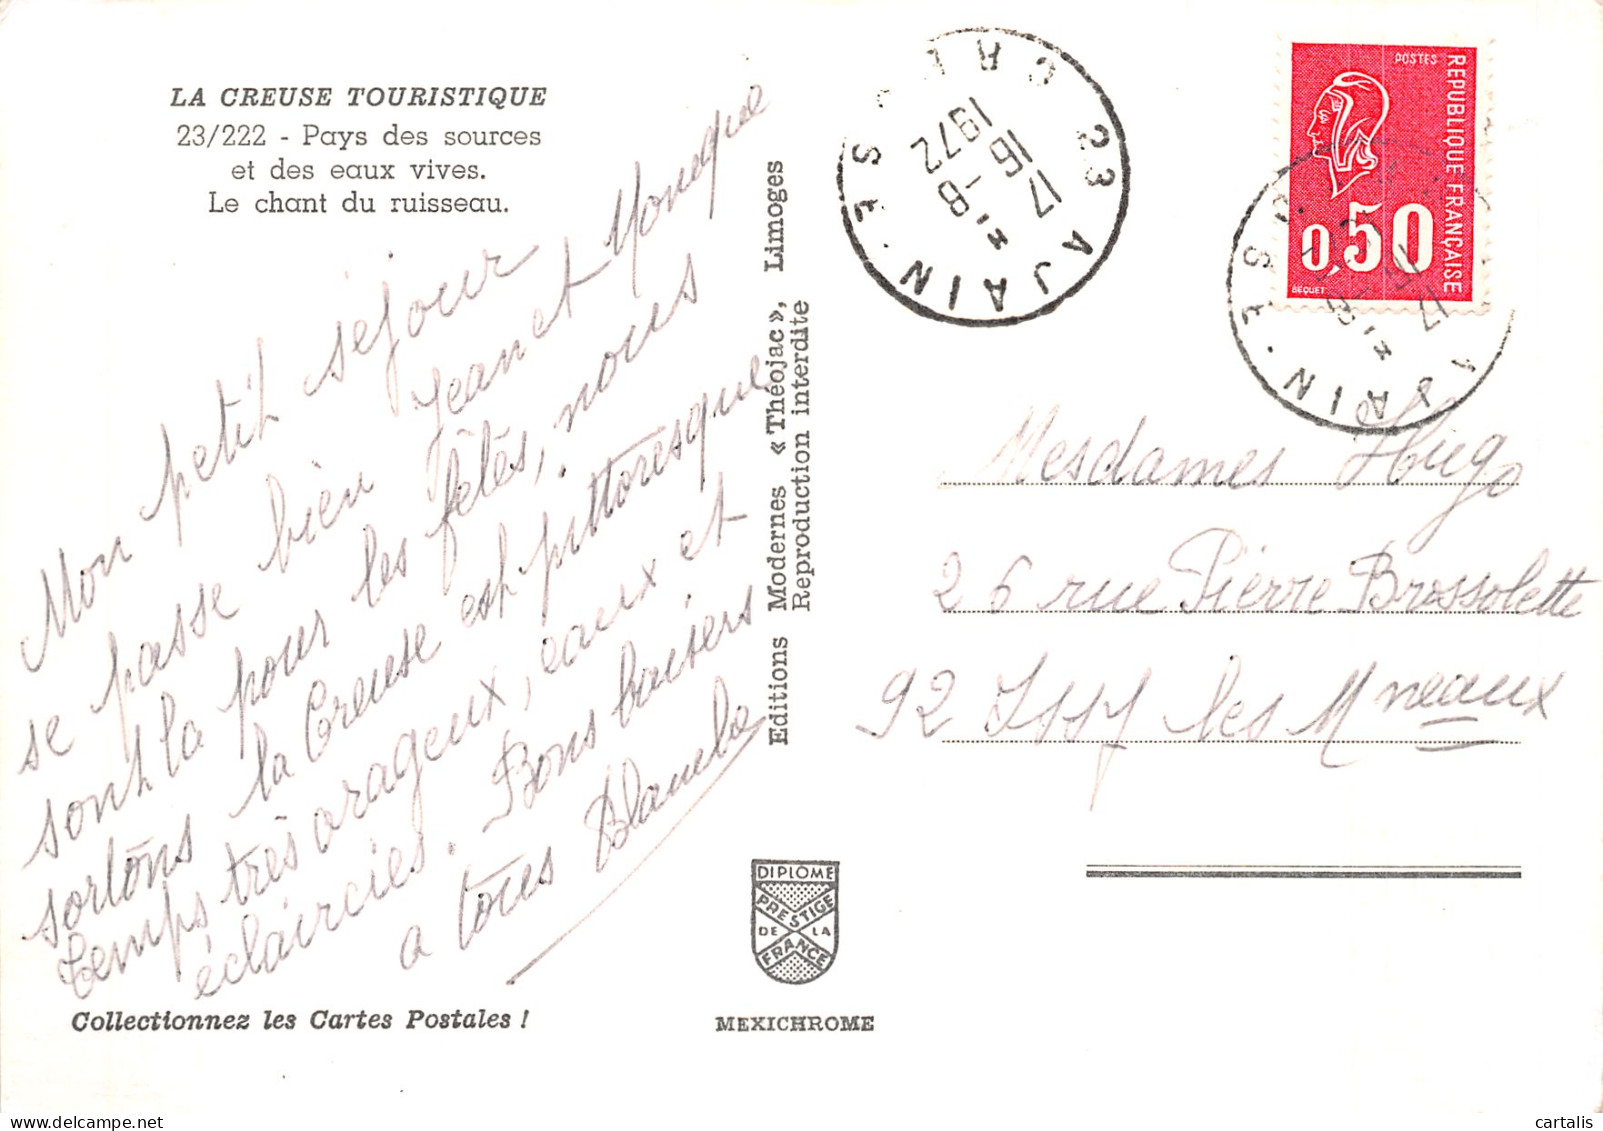 LA CREUSE TOURISTIQUE
23/222 - Pays des sources
et des eaux vives.
Le chant du ruisseau.
Mon petit séjour
se passe bien Jean et Monique
sont là pour les fêtes, nous
sortons la Creuse est pittoresque
temps très orageux, eaux et
éclaircies. Bons baisers
a tous
Collectionnez les Cartes Postales !
Editions Modernes « Théojac », Limoges
Reproduction interdite
DIPLÔME
PRESTIGE
DE LA
FRANCE
MEXICHROME
23 AJAIN
17 H
16 -8
1972
POSTES
REPUBLIQUE FRANÇAISE
0,50
BEQUET
AJAIN
17
Mesdames Hugo
26 rue Pierre Brossolette
92 Issy les Mneaux
cartalis